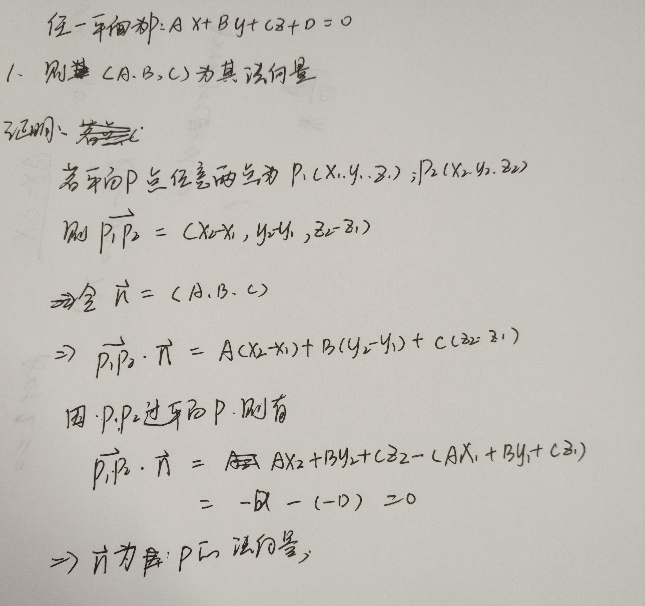 任一平面P: Ax+By+Cz+D=0
1. 则 (A.B.C)为其法向量
证明:
若平面P点任意两点为 P₁(x₁.y₁.z₁); P₂(x₂.y₂.z₂)
则 P₁P₂ = (x₂-x₁, y₂-y₁, z₂-z₁)
令 n = (A.B.C)
=> P₁P₂ · n = A(x₂-x₁)+B(y₂-y₁)+C(z₂-z₁)
因 P₁P₂过平面P.则有
P₁P₂ · n = Ax₂+By₂+Cz₂-(Ax₁+By₁+Cz₁)
= -D-(-D) =0
=> n为 P的法向量;